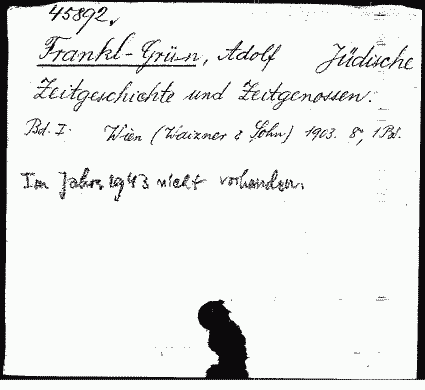 45892.
Frankl-Grün, Adolf Jüdische
Zeitgeschichte und Zeitgenossen.
Bd. I. Wien (Waizner & Sohn) 1903. 8°, 1 Bd.
Im Jahre 1943 nicht vorhanden.